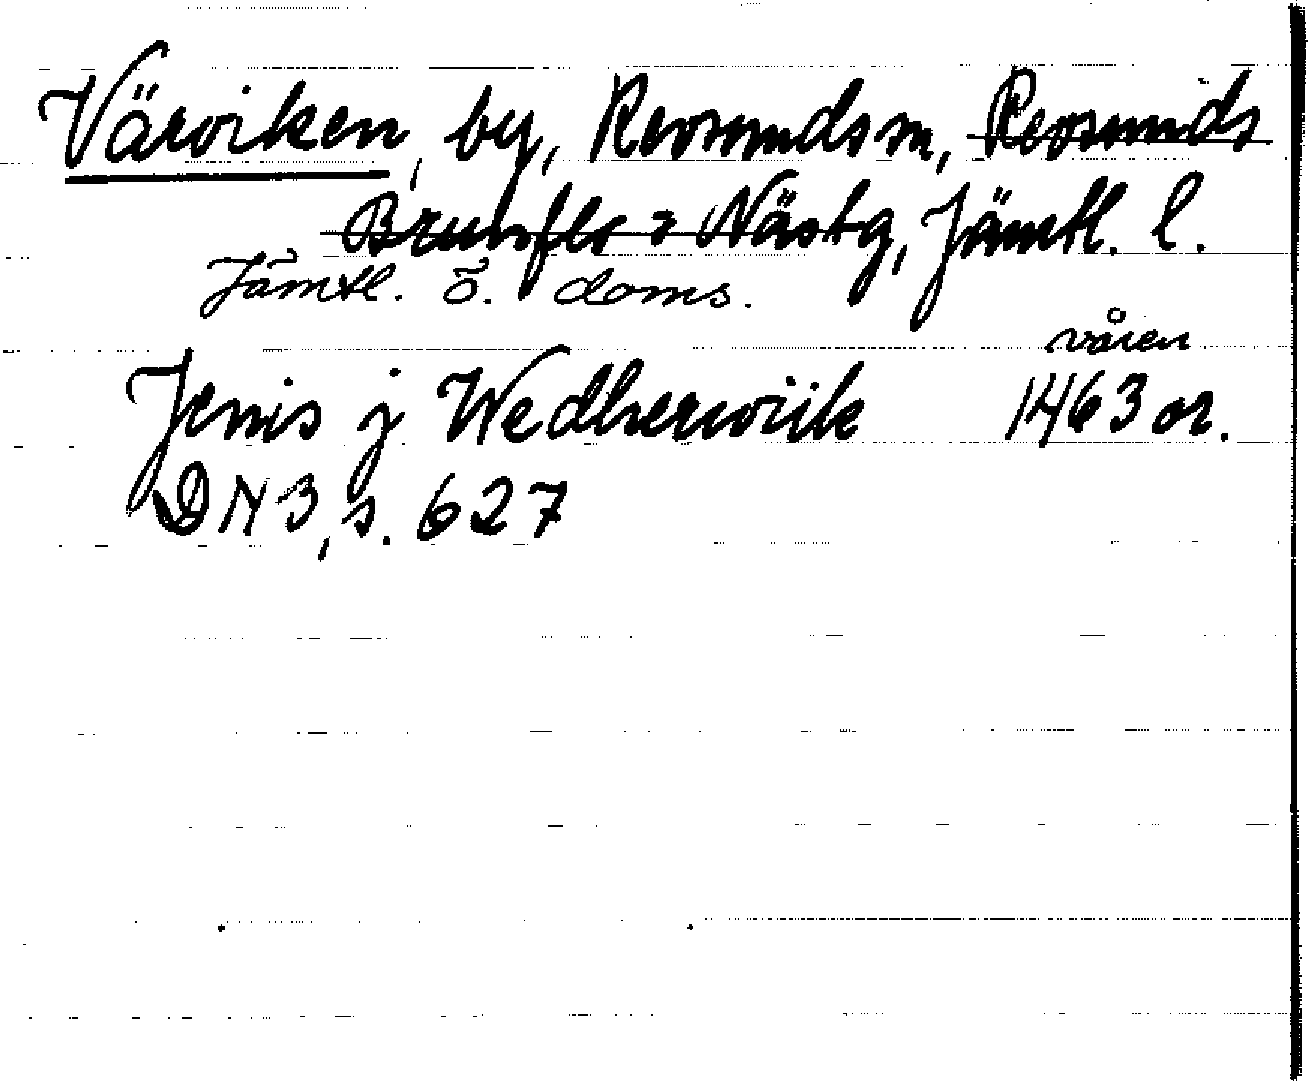 Värviken, by, Revsunds sn, Revsunds
Brunflo o Näs tg, Jämtl. l.
Jämtl. ö. doms.
våren
Jenis j Wedherwiik 1463 or.
DN 3, s. 627